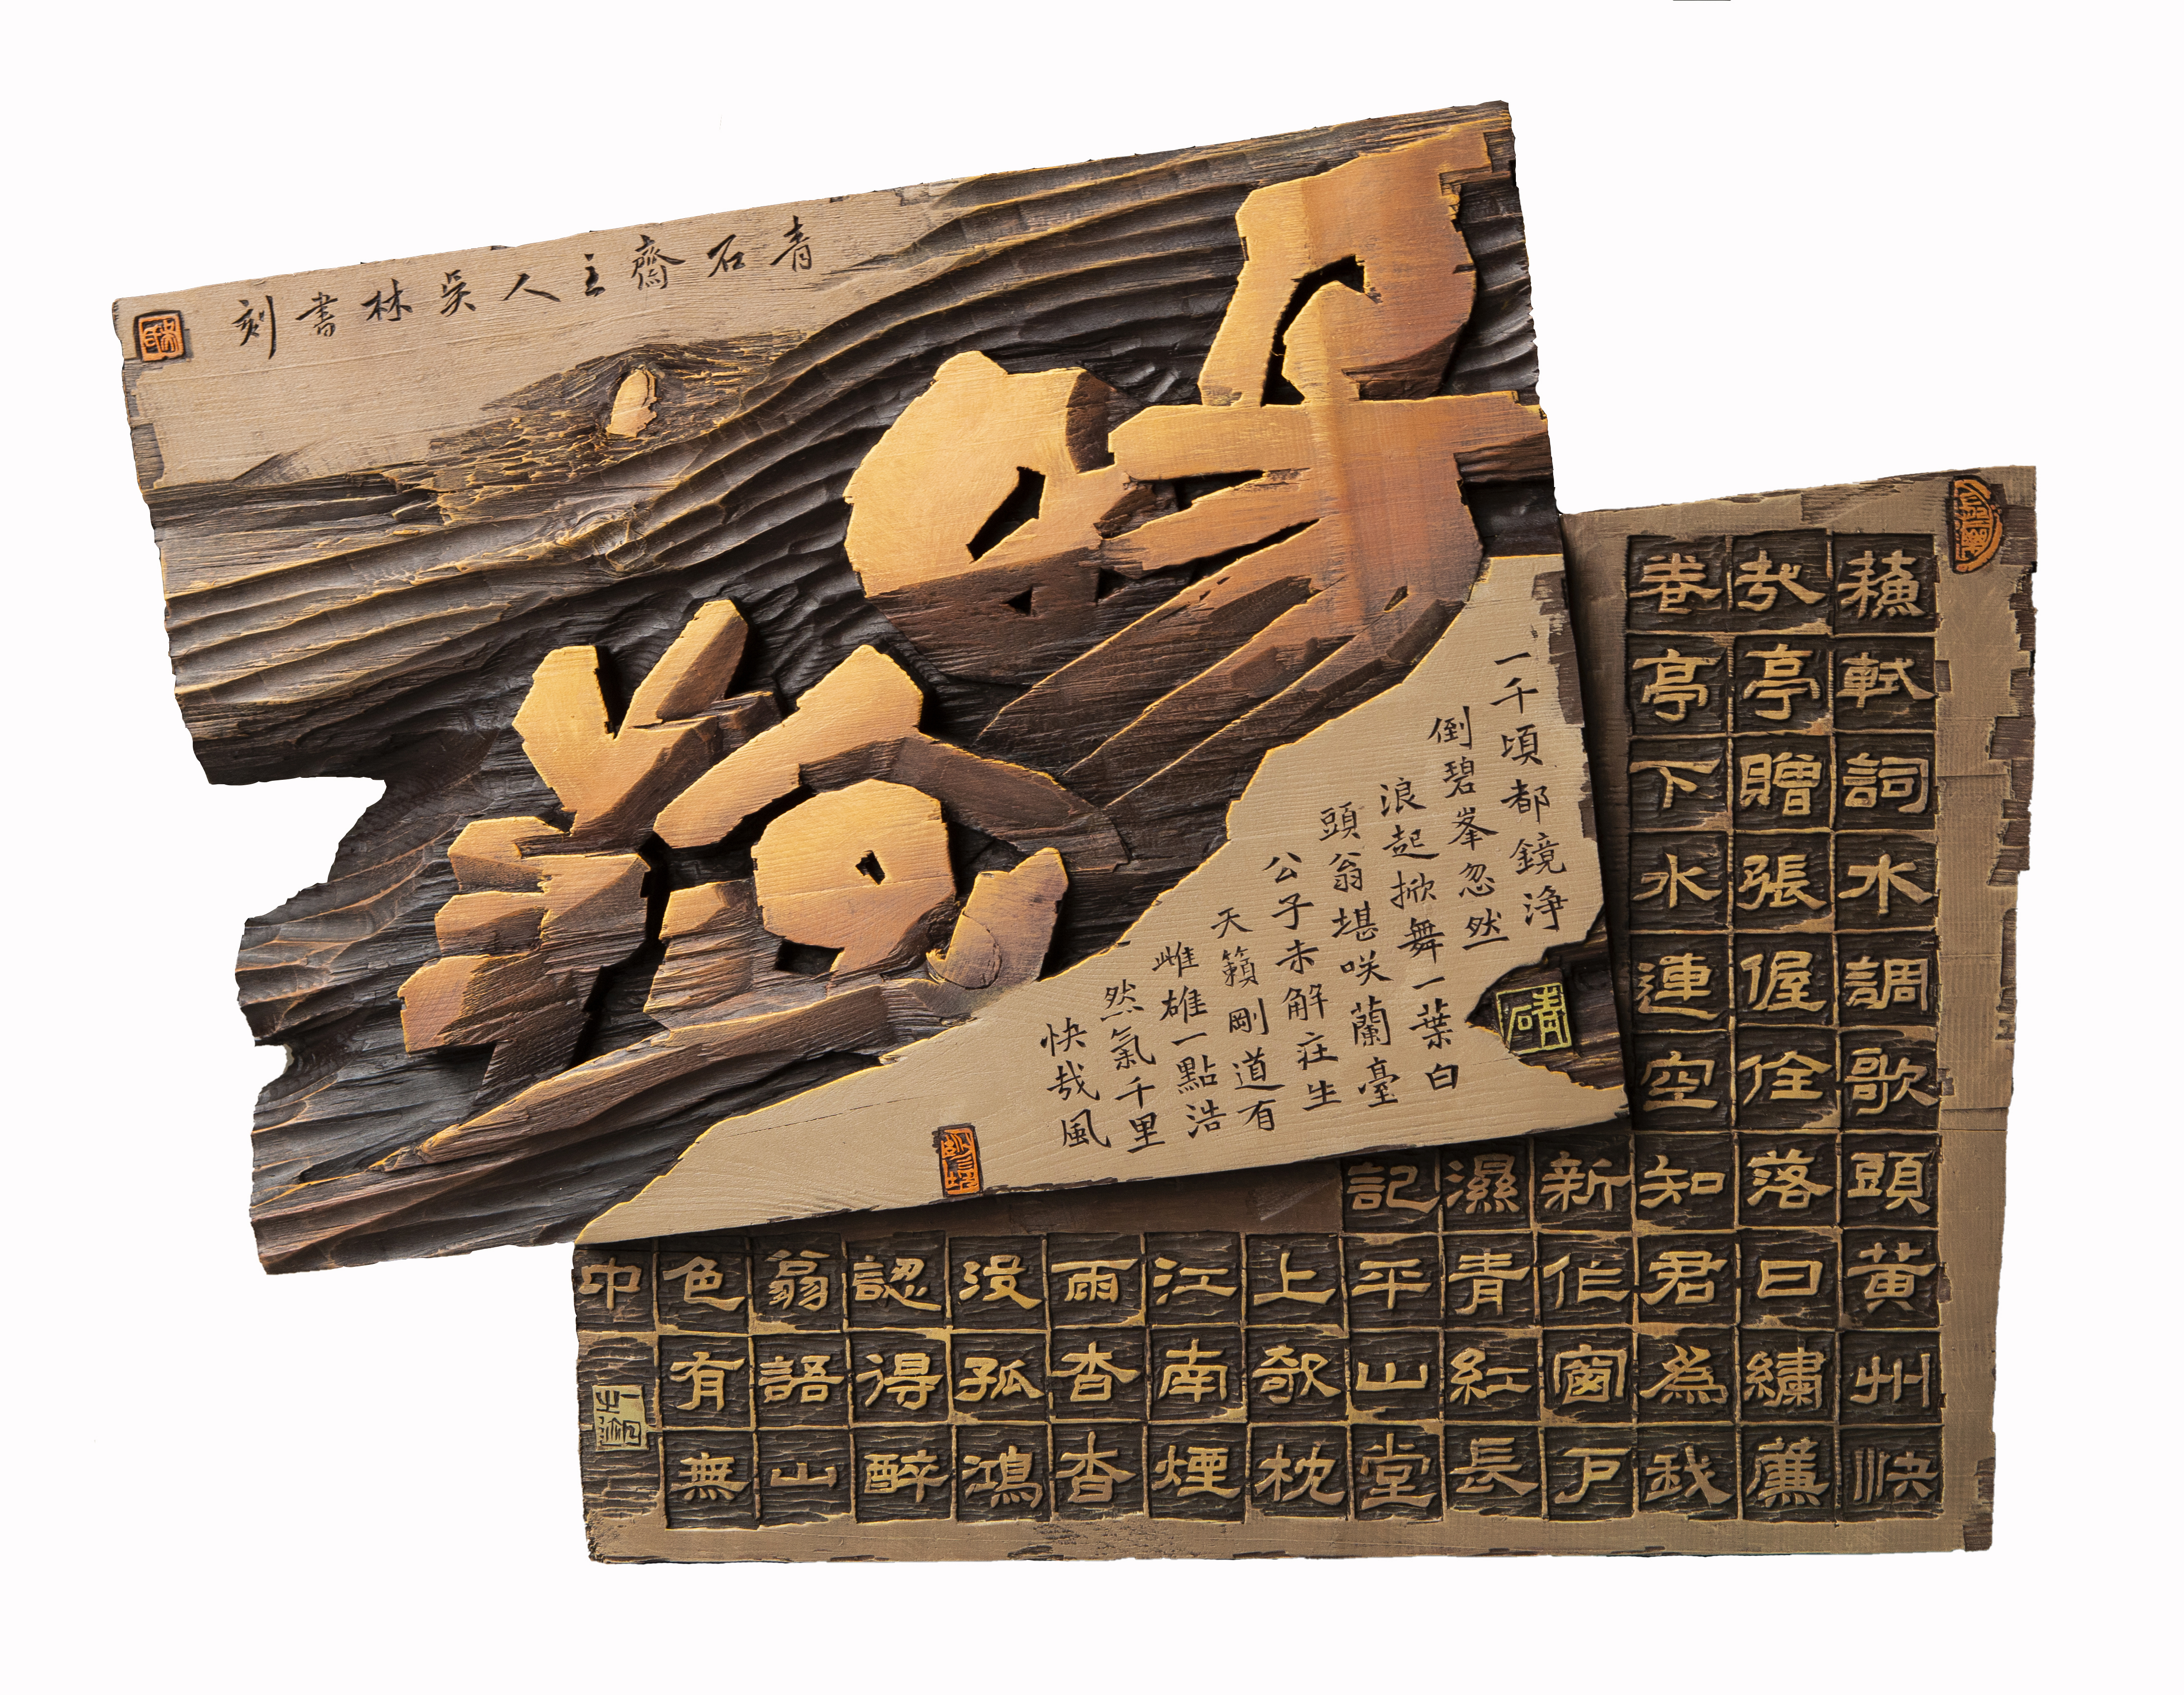 青石齋主人吳林書刻
蘇軾詞水調歌頭黃州快
哉亭贈張偓佺落日繡簾
卷亭下水連空知君為我
新作窗戶
濕青紅長
記平山堂
上欹枕
江南煙
雨杳杳
沒孤鴻
認得醉
翁語山
色有無
中
一千頃都鏡淨
倒碧峯忽然
浪起掀舞一葉白
頭翁堪咲蘭臺
公子未解莊生
天籟剛道有
雌雄一點浩
然氣千里
快哉風